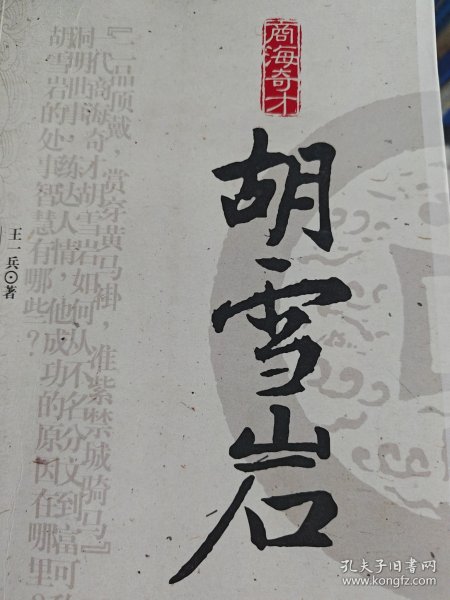 商海奇才
胡雪岩
『二品顶戴，赏穿黄马褂，准紫禁城骑马』
一代商海奇才胡雪岩如何从不名分文到富可
洞明世事，练达人情，他成功的原因在哪里？
胡雪岩的处事智慧有哪些？
王一兵⊙著
孔夫子旧书网
www.kongfz.com